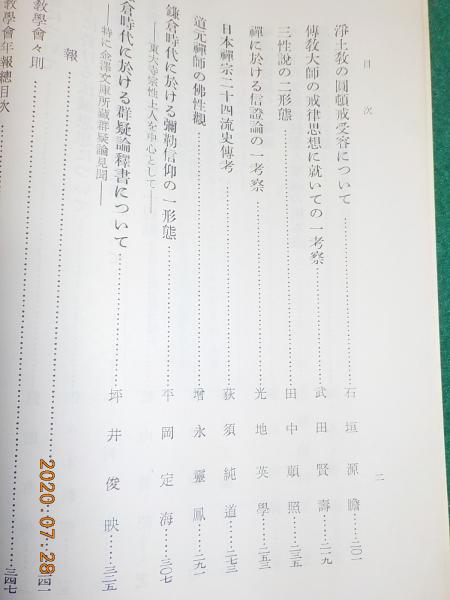 目次
二
淨土教の圓頓戒受容について……石垣源瞻……二〇一
傳教大師の戒律思想に就いての一考察……武田賢壽……二一九
三性說の二形態……田中順照……二三五
禪に於ける信證論の一考察……光地英學……二五三
日本禪宗二十四流史傳考……荻須純道……二七三
道元禪師の佛性觀……增永靈鳳……二九一
鎌倉時代に於ける彌勒信仰の一形態……平岡定海……三〇七
——東大寺宗性上人を中心として——
倉時代に於ける群疑論釋書について……坪井俊映……三二五
——特に金澤文庫所藏群疑論見聞——
報
教學會々則
教學會年報總目次……三四七
2020.07.28